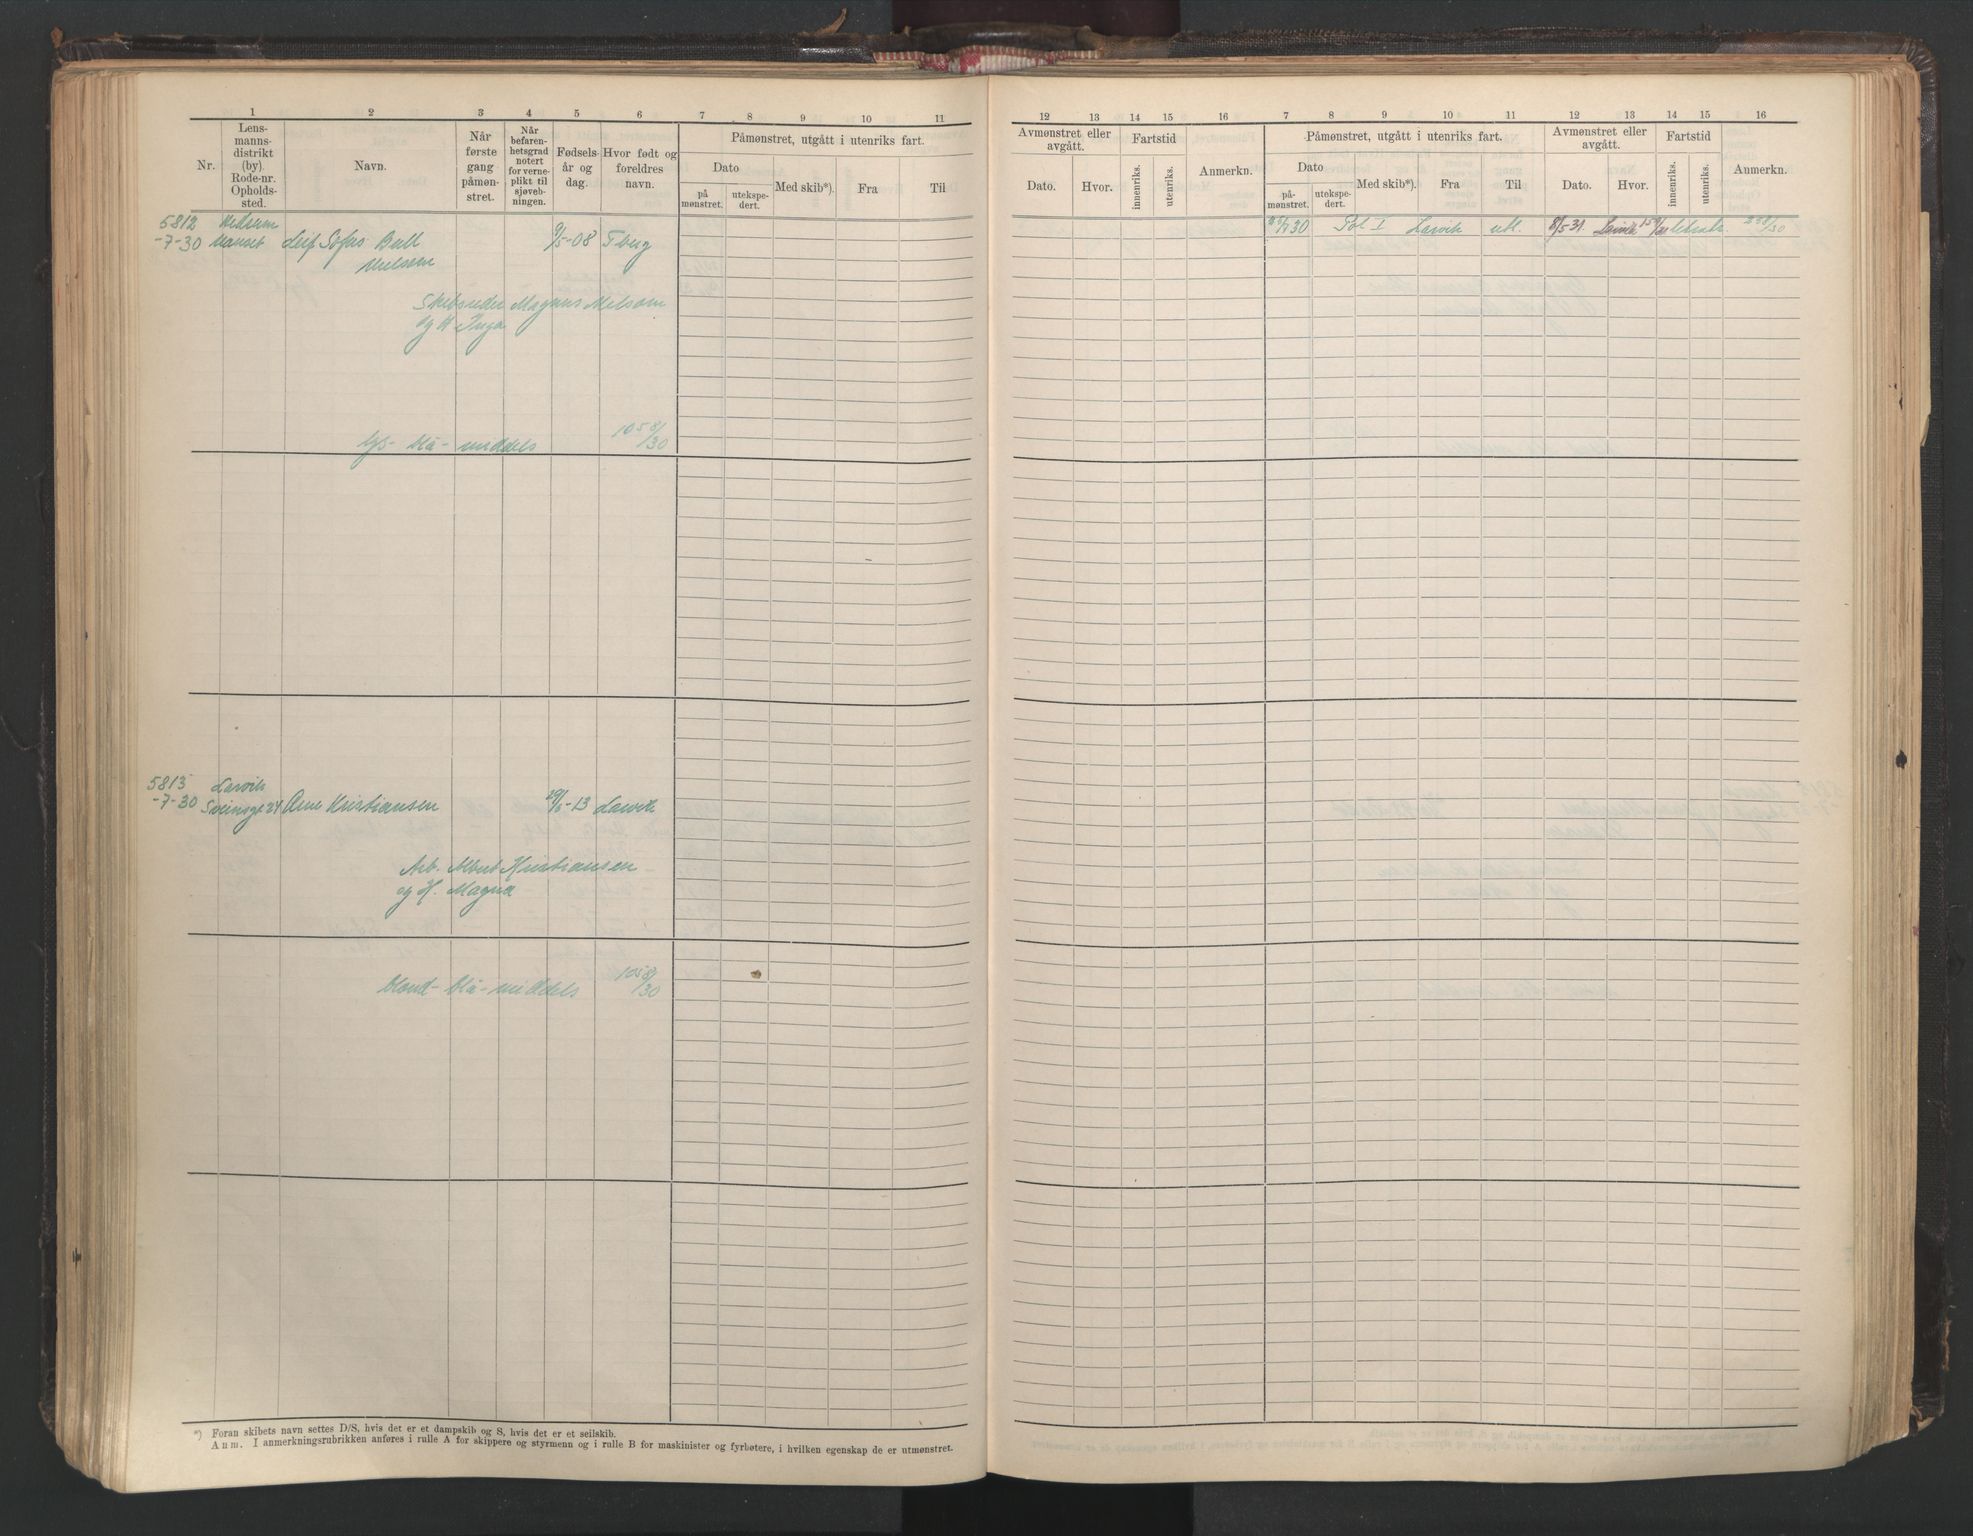 1 2 3 4 5 6 7 8 9 10 11
Nr.
Lens-
manns-
distrikt
(by).
Rode-nr.
Opholds-
sted.
Navn.
Når
første
gang
påmøn-
stret.
Når
befaren-
hetsgrad
notert
for verne-
plikt til
sjøveb-
ningen.
Fødsels-
år og
dag.
Hvor født og
foreldres
navn.
Påmønstret, utgått i utenriks fart.
Dato
på
mønstret.
utekspe-
dert.
Med skib*).
Fra
Til
5812
-7-30 Leif Sofus Bull 9/5-08 T-berg
Melsom
Skibsreder Magnus Melsom
og H. Inga
lys- blå- middels 1058/30
5813 Larvik
-7-30 Sveinsgt 24 Arne Kristiansen -13 Larvik
Arb. Albert Kristiansen
og H. Magna
blond- blå- middels 1058/30
*) Foran skibets navn settes D/S, hvis det er et dampskib og S, hvis det er et seilskib.
Anm. I anmerkningsrubrikken anføres i rulle A for skippere og styrmenn og i rulle B for maskinister og fyrbøtere, i hvilken egenskap de er utmønstret.
12 13 14 15 16 7 8 9 10 11 12 13 14 15 16
Avmønstret eller
avgått.
Dato.
Hvor.
Fartstid
innenriks.
utenriks.
Anmerkn.
Påmønstret, utgått i utenriks fart.
Dato
på-
mønstret.
utekspe-
dert.
Med skib*).
Fra
Til
Avmønstret eller
avgått.
Dato.
Hvor.
Fartstid
innenriks.
utenriks.
Anmerkn.
Pol I Larvik utl. 8/5 31. Larvik 228/30